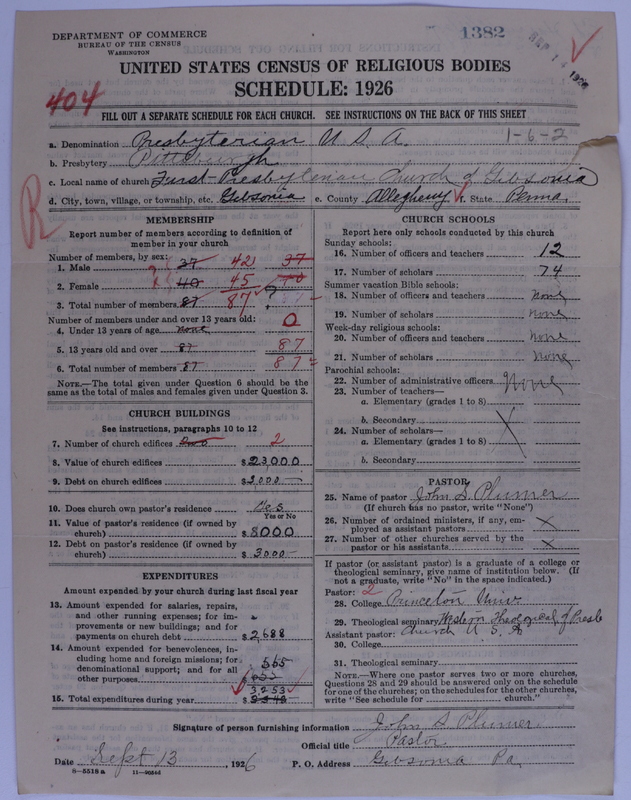 DEPARTMENT OF COMMERCE
BUREAU OF THE CENSUS
WASHINGTON
1382
SEP 14 1926
UNITED STATES CENSUS OF RELIGIOUS BODIES
SCHEDULE: 1926
404
FILL OUT A SEPARATE SCHEDULE FOR EACH CHURCH. SEE INSTRUCTIONS ON THE BACK OF THIS SHEET
a. Denomination Presbyterian U. S. A. 1-6-2
b. Presbytery Pittsburgh
c. Local name of church First Presbyterian Church of Gibsonia
d. City, town, village, or township, etc. Gibsonia e. County Allegheny f. State Penna.
R
MEMBERSHIP
Report number of members according to definition of member in your church
Number of members, by sex:
1. Male 37 42 37
2. Female 40 45
3. Total number of members 87 87 ?
Number of members under and over 13 years old:
4. Under 13 years of age none 0
5. 13 years old and over 87 87
6. Total number of members 87 87
NOTE.—The total given under Question 6 should be the same as the total of males and females given under Question 3.
CHURCH BUILDINGS
See instructions, paragraphs 10 to 12
7. Number of church edifices Two 2
8. Value of church edifices $23,000
9. Debt on church edifices $3,000
10. Does church own pastor's residence Yes
Yes or No
11. Value of pastor's residence (if owned by church) $8000
12. Debt on pastor's residence (if owned by church) $3000
EXPENDITURES
Amount expended by your church during last fiscal year
13. Amount expended for salaries, repairs, and other running expenses; for improvements or new buildings; and for payments on church debt $2,688
14. Amount expended for benevolences, including home and foreign missions; for denominational support; and for all other purposes 565
15. Total expenditures during year 3253
CHURCH SCHOOLS
Report here only schools conducted by this church
Sunday schools:
16. Number of officers and teachers 12
17. Number of scholars 74
Summer vacation Bible schools:
18. Number of officers and teachers none
19. Number of scholars none
Week-day religious schools:
20. Number of officers and teachers none
21. Number of scholars none
Parochial schools:
22. Number of administrative officers None
23. Number of teachers—
a. Elementary (grades 1 to 8)
b. Secondary
24. Number of scholars—
a. Elementary (grades 1 to 8)
b. Secondary
PASTOR
25. Name of pastor John S. Plumer
(If church has no pastor, write "None")
26. Number of ordained ministers, if any, employed as assistant pastors x
27. Number of other churches served by the pastor or his assistants x
If pastor (or assistant pastor) is a graduate of a college or theological seminary, give name of institution below. (If not a graduate, write "No" in the space indicated.)
Pastor: 2
28. College Princeton Univ
29. Theological seminary Western Theological of Presb
Assistant pastor: Church U S A
30. College
31. Theological seminary
NOTE.—Where one pastor serves two or more churches, Questions 28 and 29 should be answered only on the schedule for one of the churches; on the schedules for the other churches, write "See schedule for church."
Signature of person furnishing information John S Plumer
Official title Pastor
Date Sept 13, 1926 P. O. Address Gibsonia Pa.
8—5518 a